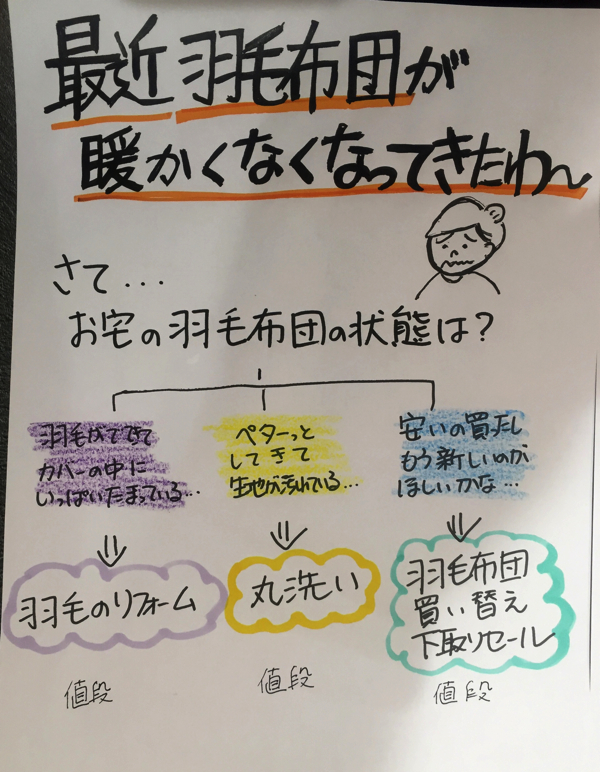 最近羽毛布団が
暖かくなくなってきたわ〜
さて...
お宅の羽毛布団の状態は?
羽毛がでてきて
カバーの中に
いっぱいたまっている...
ペターっと
してきて
生地が汚れている...
安いの買ったし
もう新しいのが
ほしいかな...
羽毛のリフォーム
丸洗い
羽毛布団
買い替え
下取りセール
値段
値段
値段